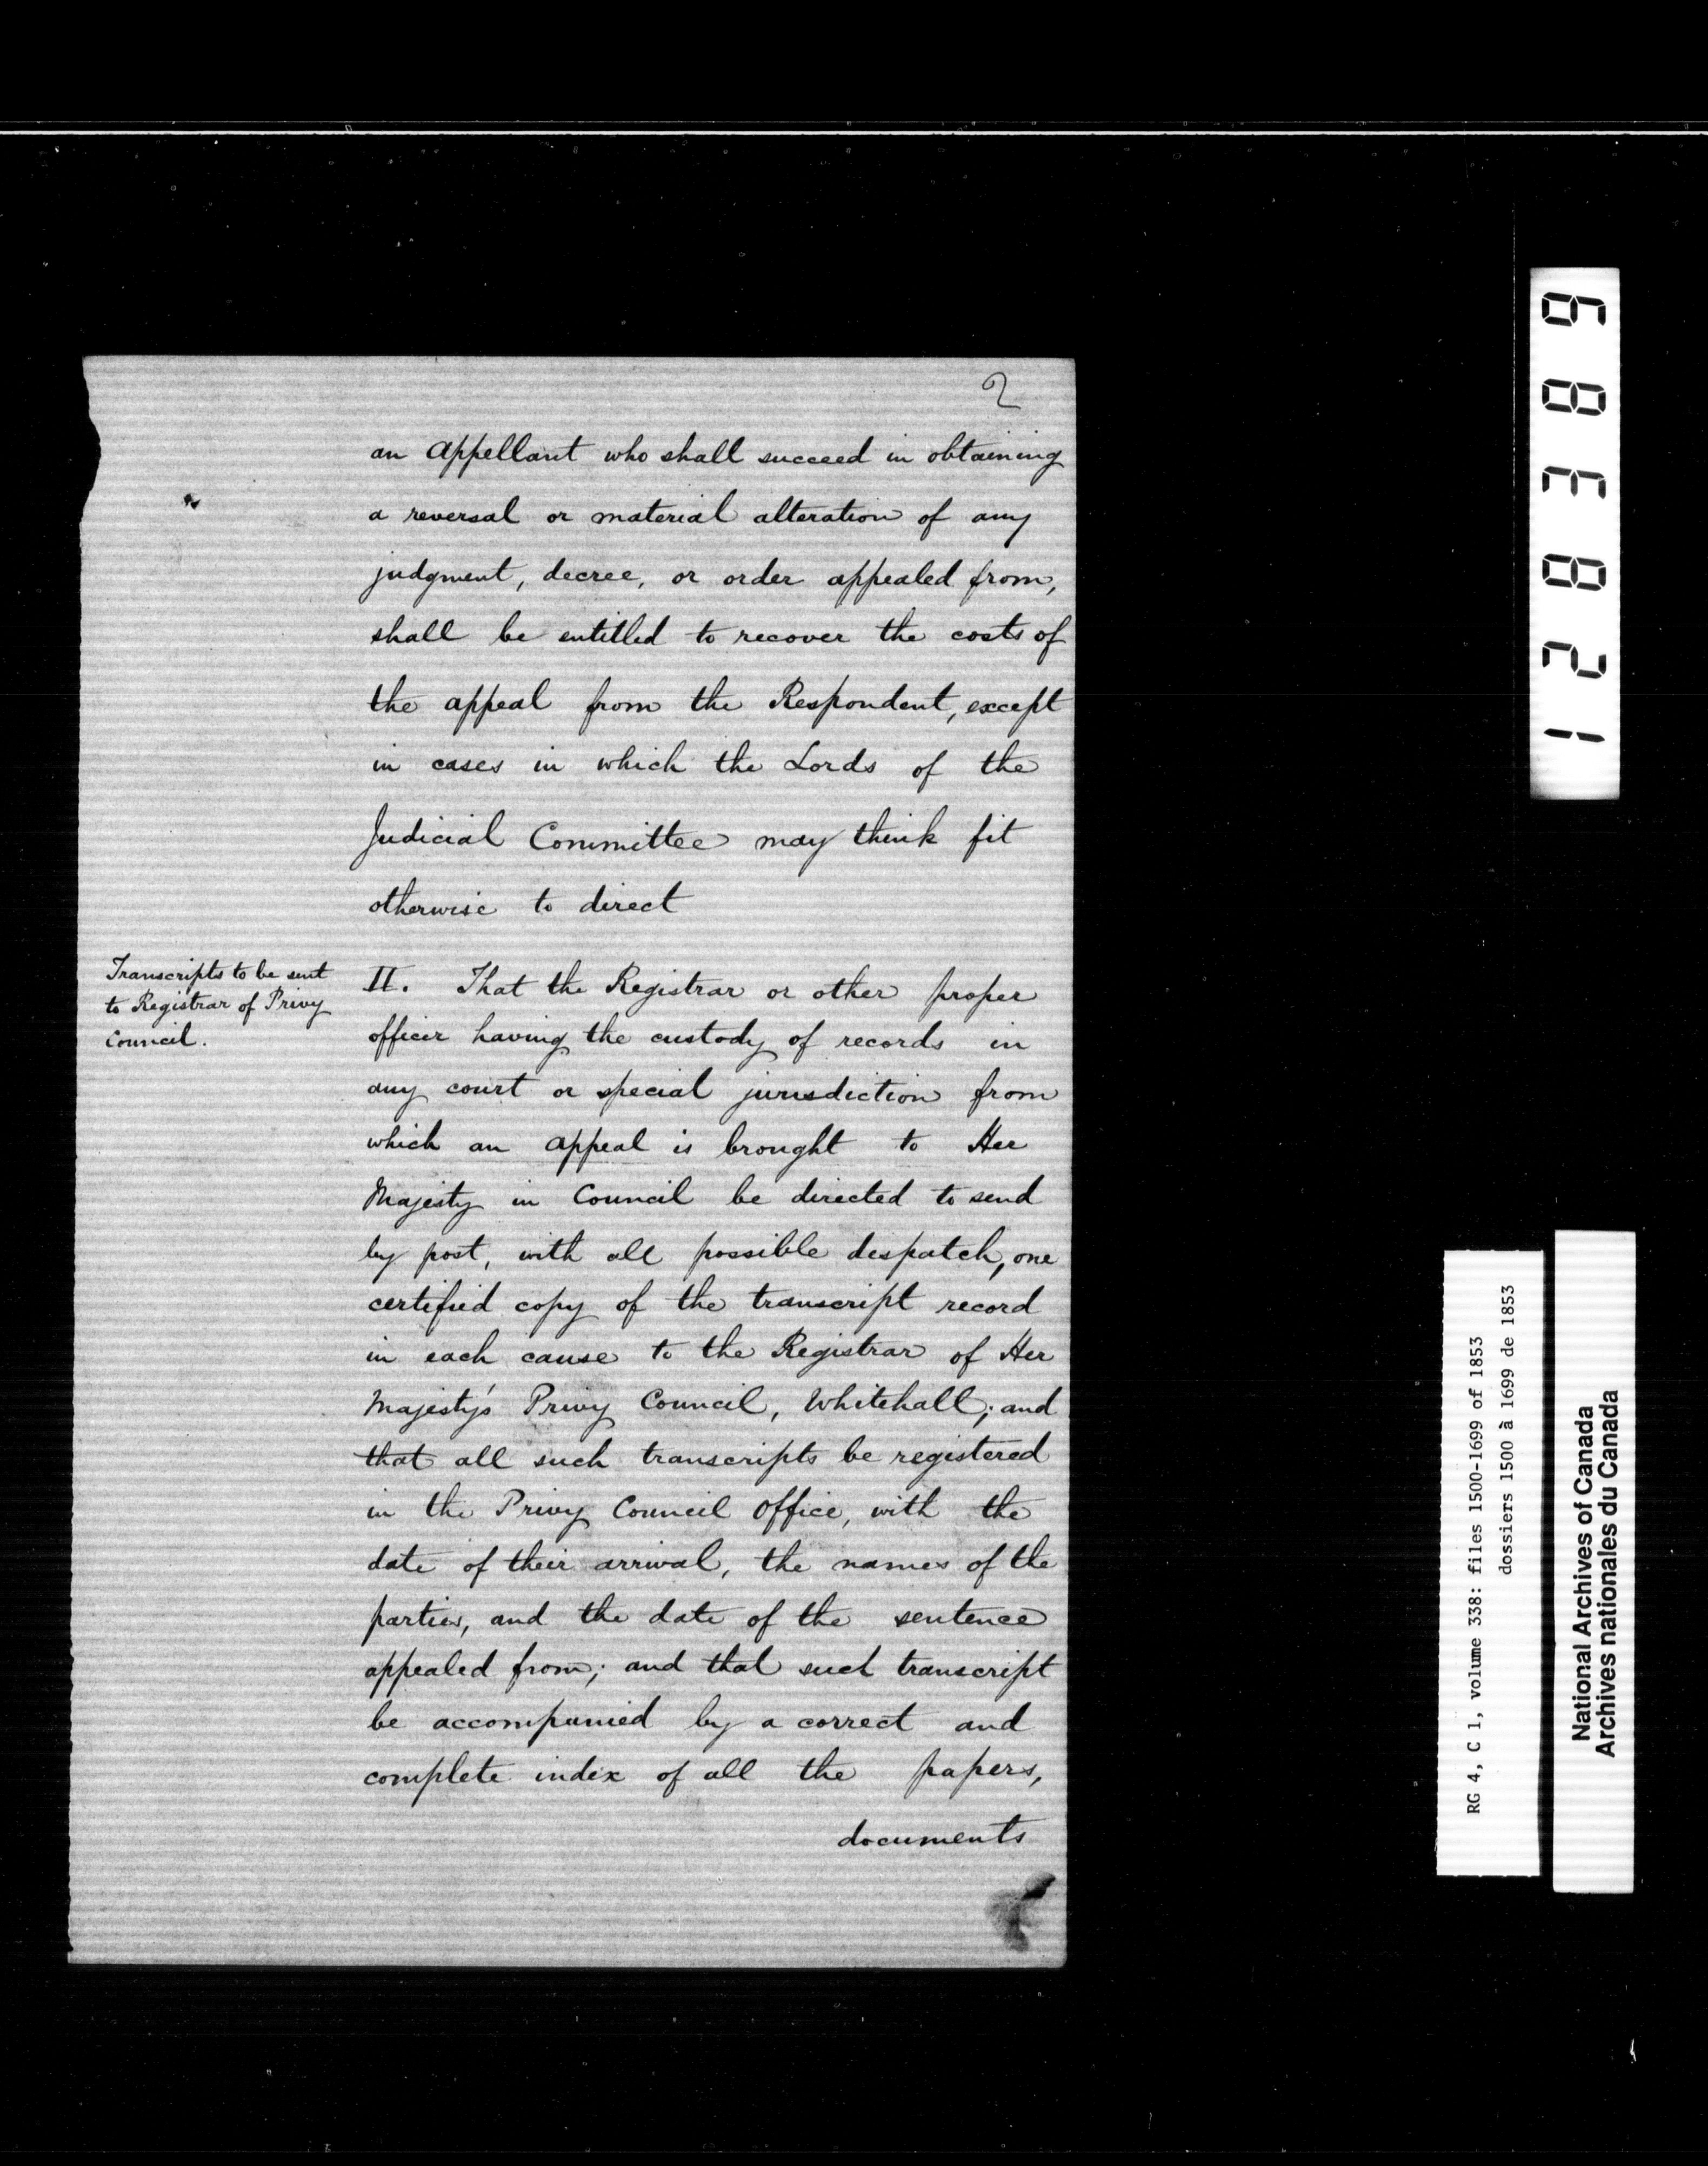 2
an appellant who shall succeed in obtaining
a reversal or material alteration of any
judgment, decree, or order appealed from,
shall be entitled to recover the costs of
the appeal from the Respondent, except
in cases in which the Lords of the
Judicial Committee may think fit
otherwise to direct
Transcripts to be sent
to Registrar of Privy
Council.
II. That the Registrar or other proper
officer having the custody of records in
any court or special jurisdiction from
which an appeal is brought to Her
Majesty in Council be directed to send
by post, with all possible despatch, one
certified copy of the transcript record
in each cause to the Registrar of Her
Majesty's Privy Council, Whitehall; and
that all such transcripts be registered
in the Privy Council Office, with the
date of their arrival, the names of the
parties, and the date of the sentence
appealed from; and that such transcript
be accompanied by a correct and
complete index of all the papers,
documents
128389
RG 4, C 1, volume 338: files 1500-1699 of 1853
dossiers 1500 à 1699 de 1853
National Archives of Canada
Archives nationales du Canada